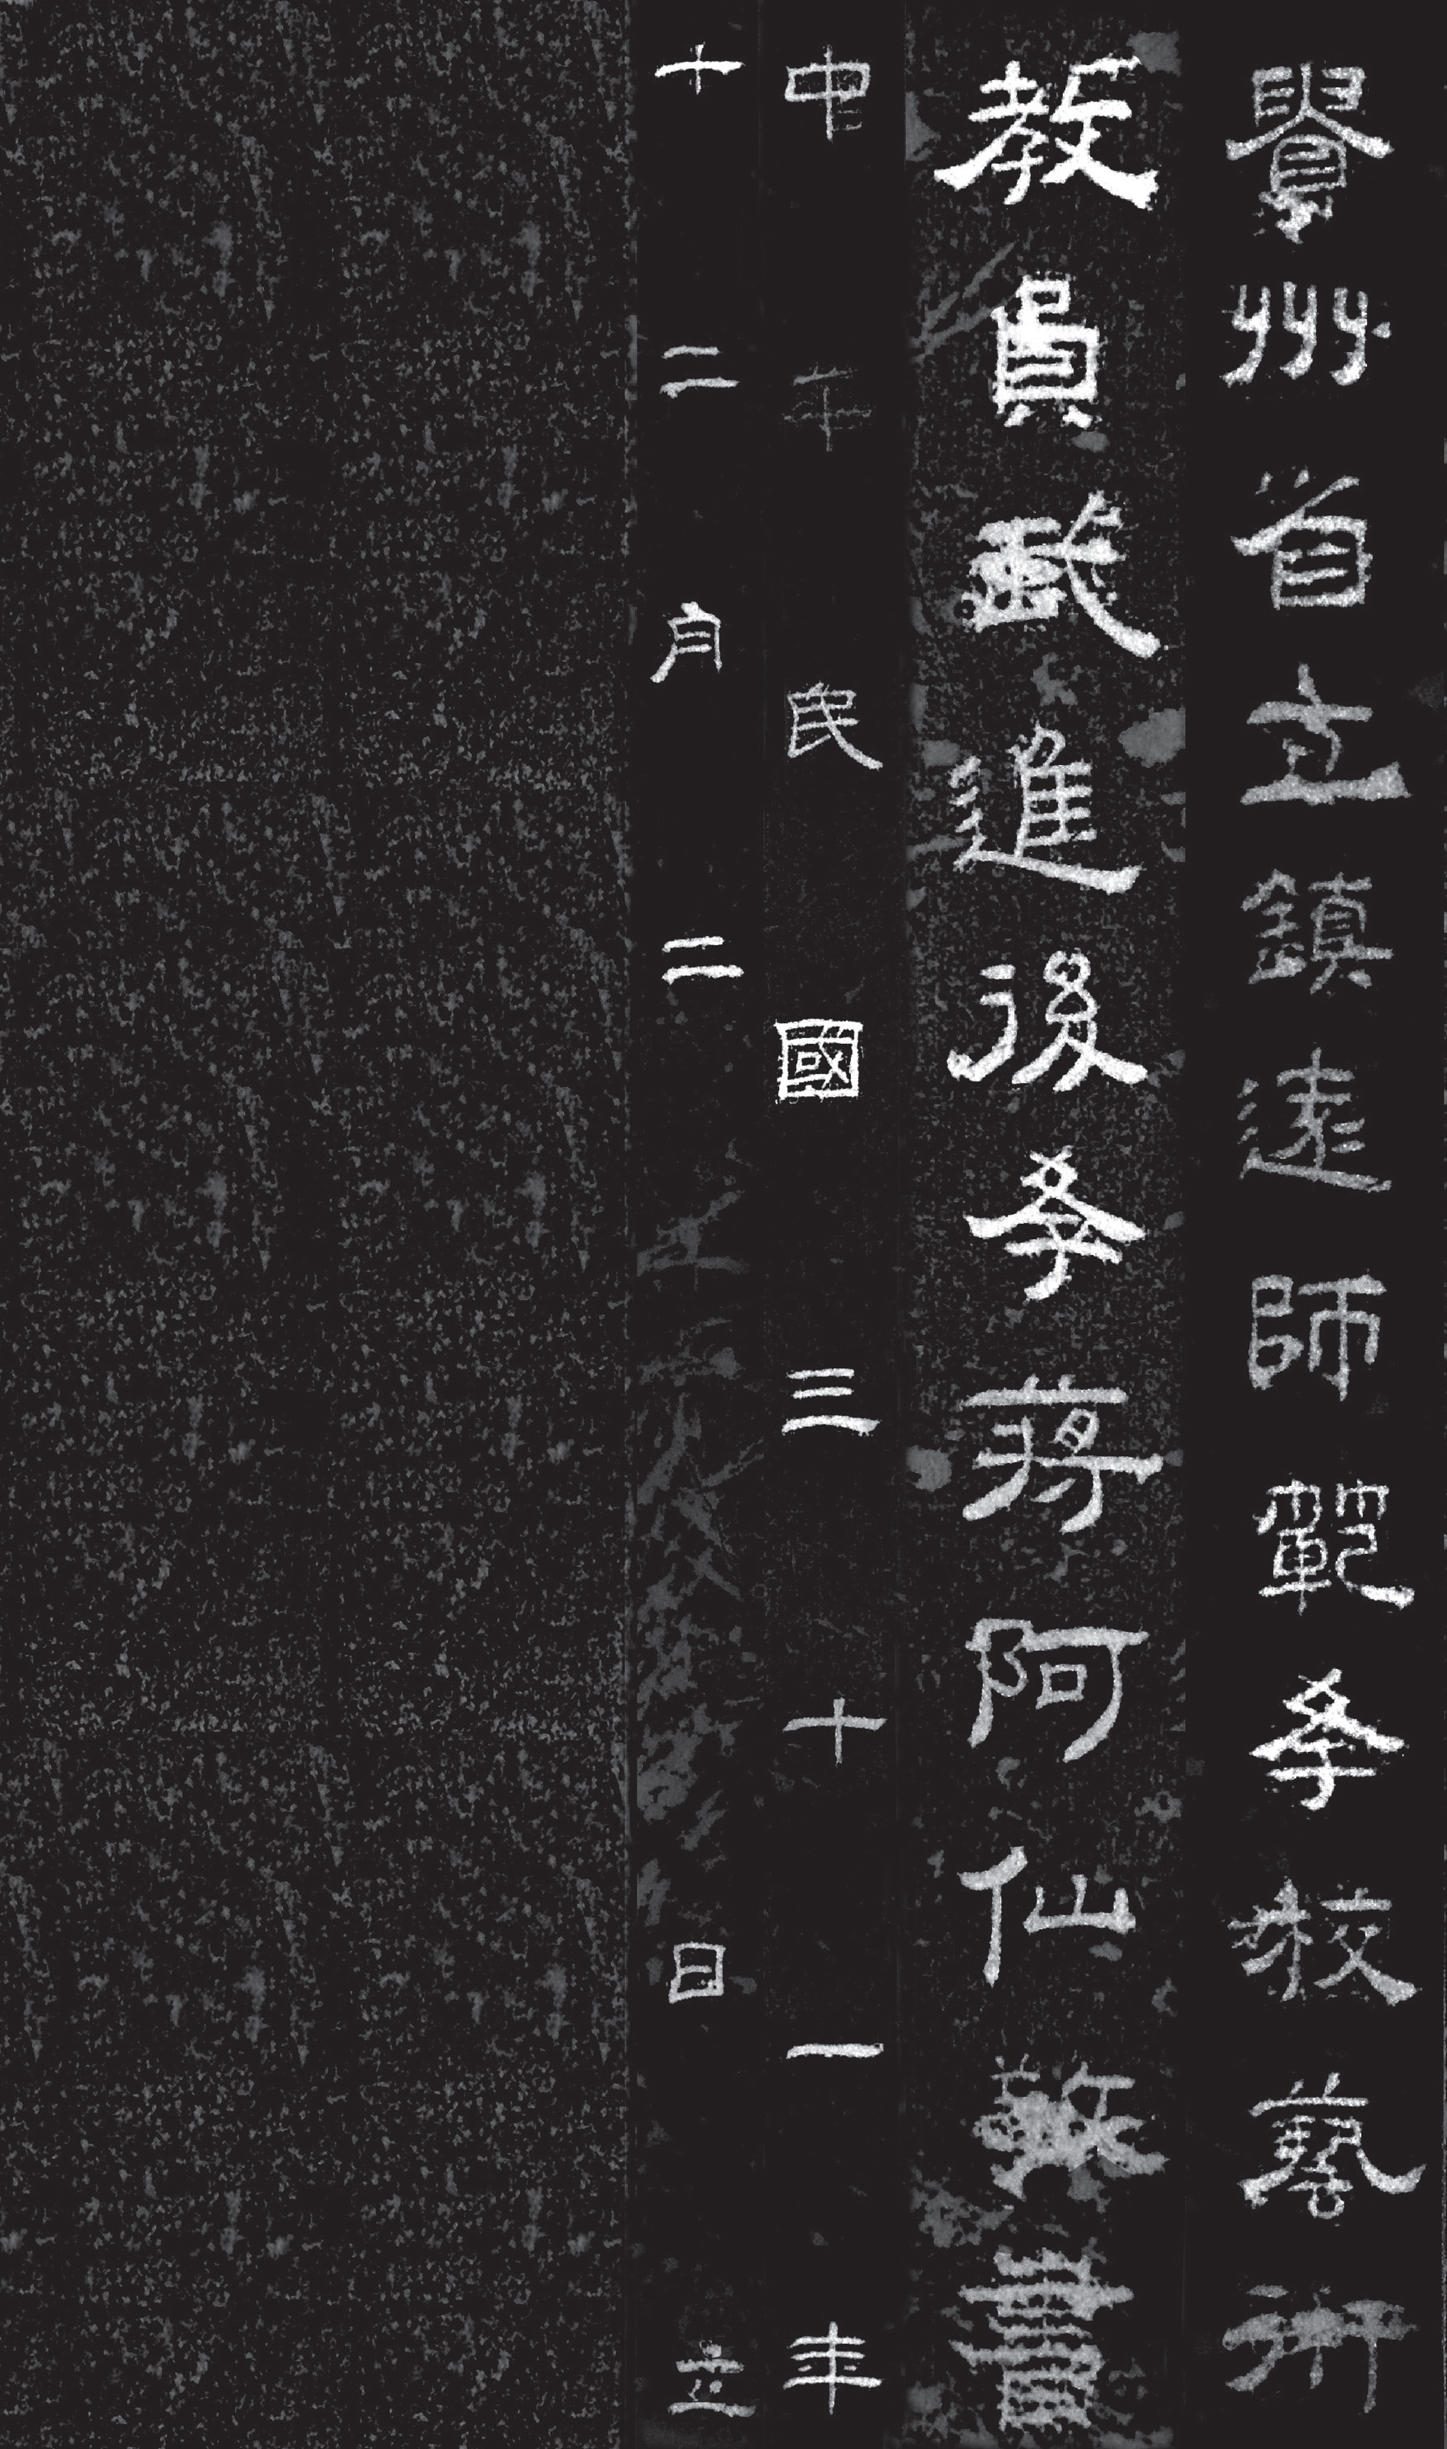 貴州省立鎮遠師範學校藝術
教員武進後學蔣阿仙敬書
中華民國三十一年
十二月二日立